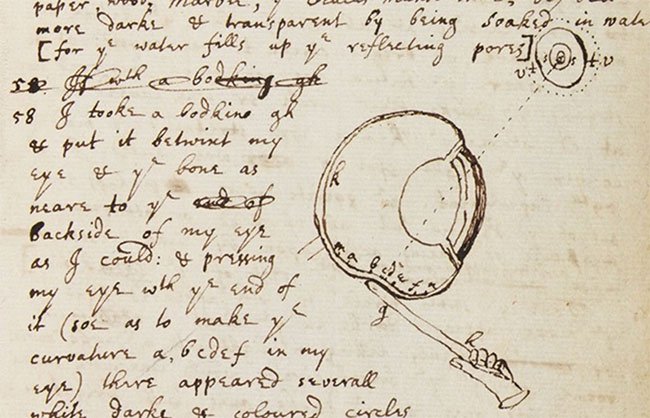 more darke & transparent by being soaked in wate
[for yᵉ water fills up yᵉ reflecting pores]
58 If wth a bodking gh
58 I tooke a bodkine gh
& put it betwixt my
eye & yᵉ bone as
neare to yᵉ end of
backside of my eye
as I could: & pressing
my eye wth yᵉ end of
it (soe as to make yᵉ
curvature a, bcdef in my
eye) there appeared severall
white darke & coloured circles
v t s s t v
k
m a b c d e f n
g
h